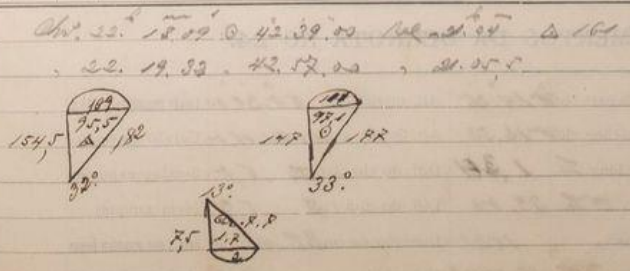 22. 18.09 ⊙ 42.39.00 21.04 △ 161
, 22. 19.33 . 42.57.00 , 21.05,5
189
95,5
154,5 △ 182
32°
188
97,1
147 ⊙ 177
33°
13°
7,5 1.7 7.7
2